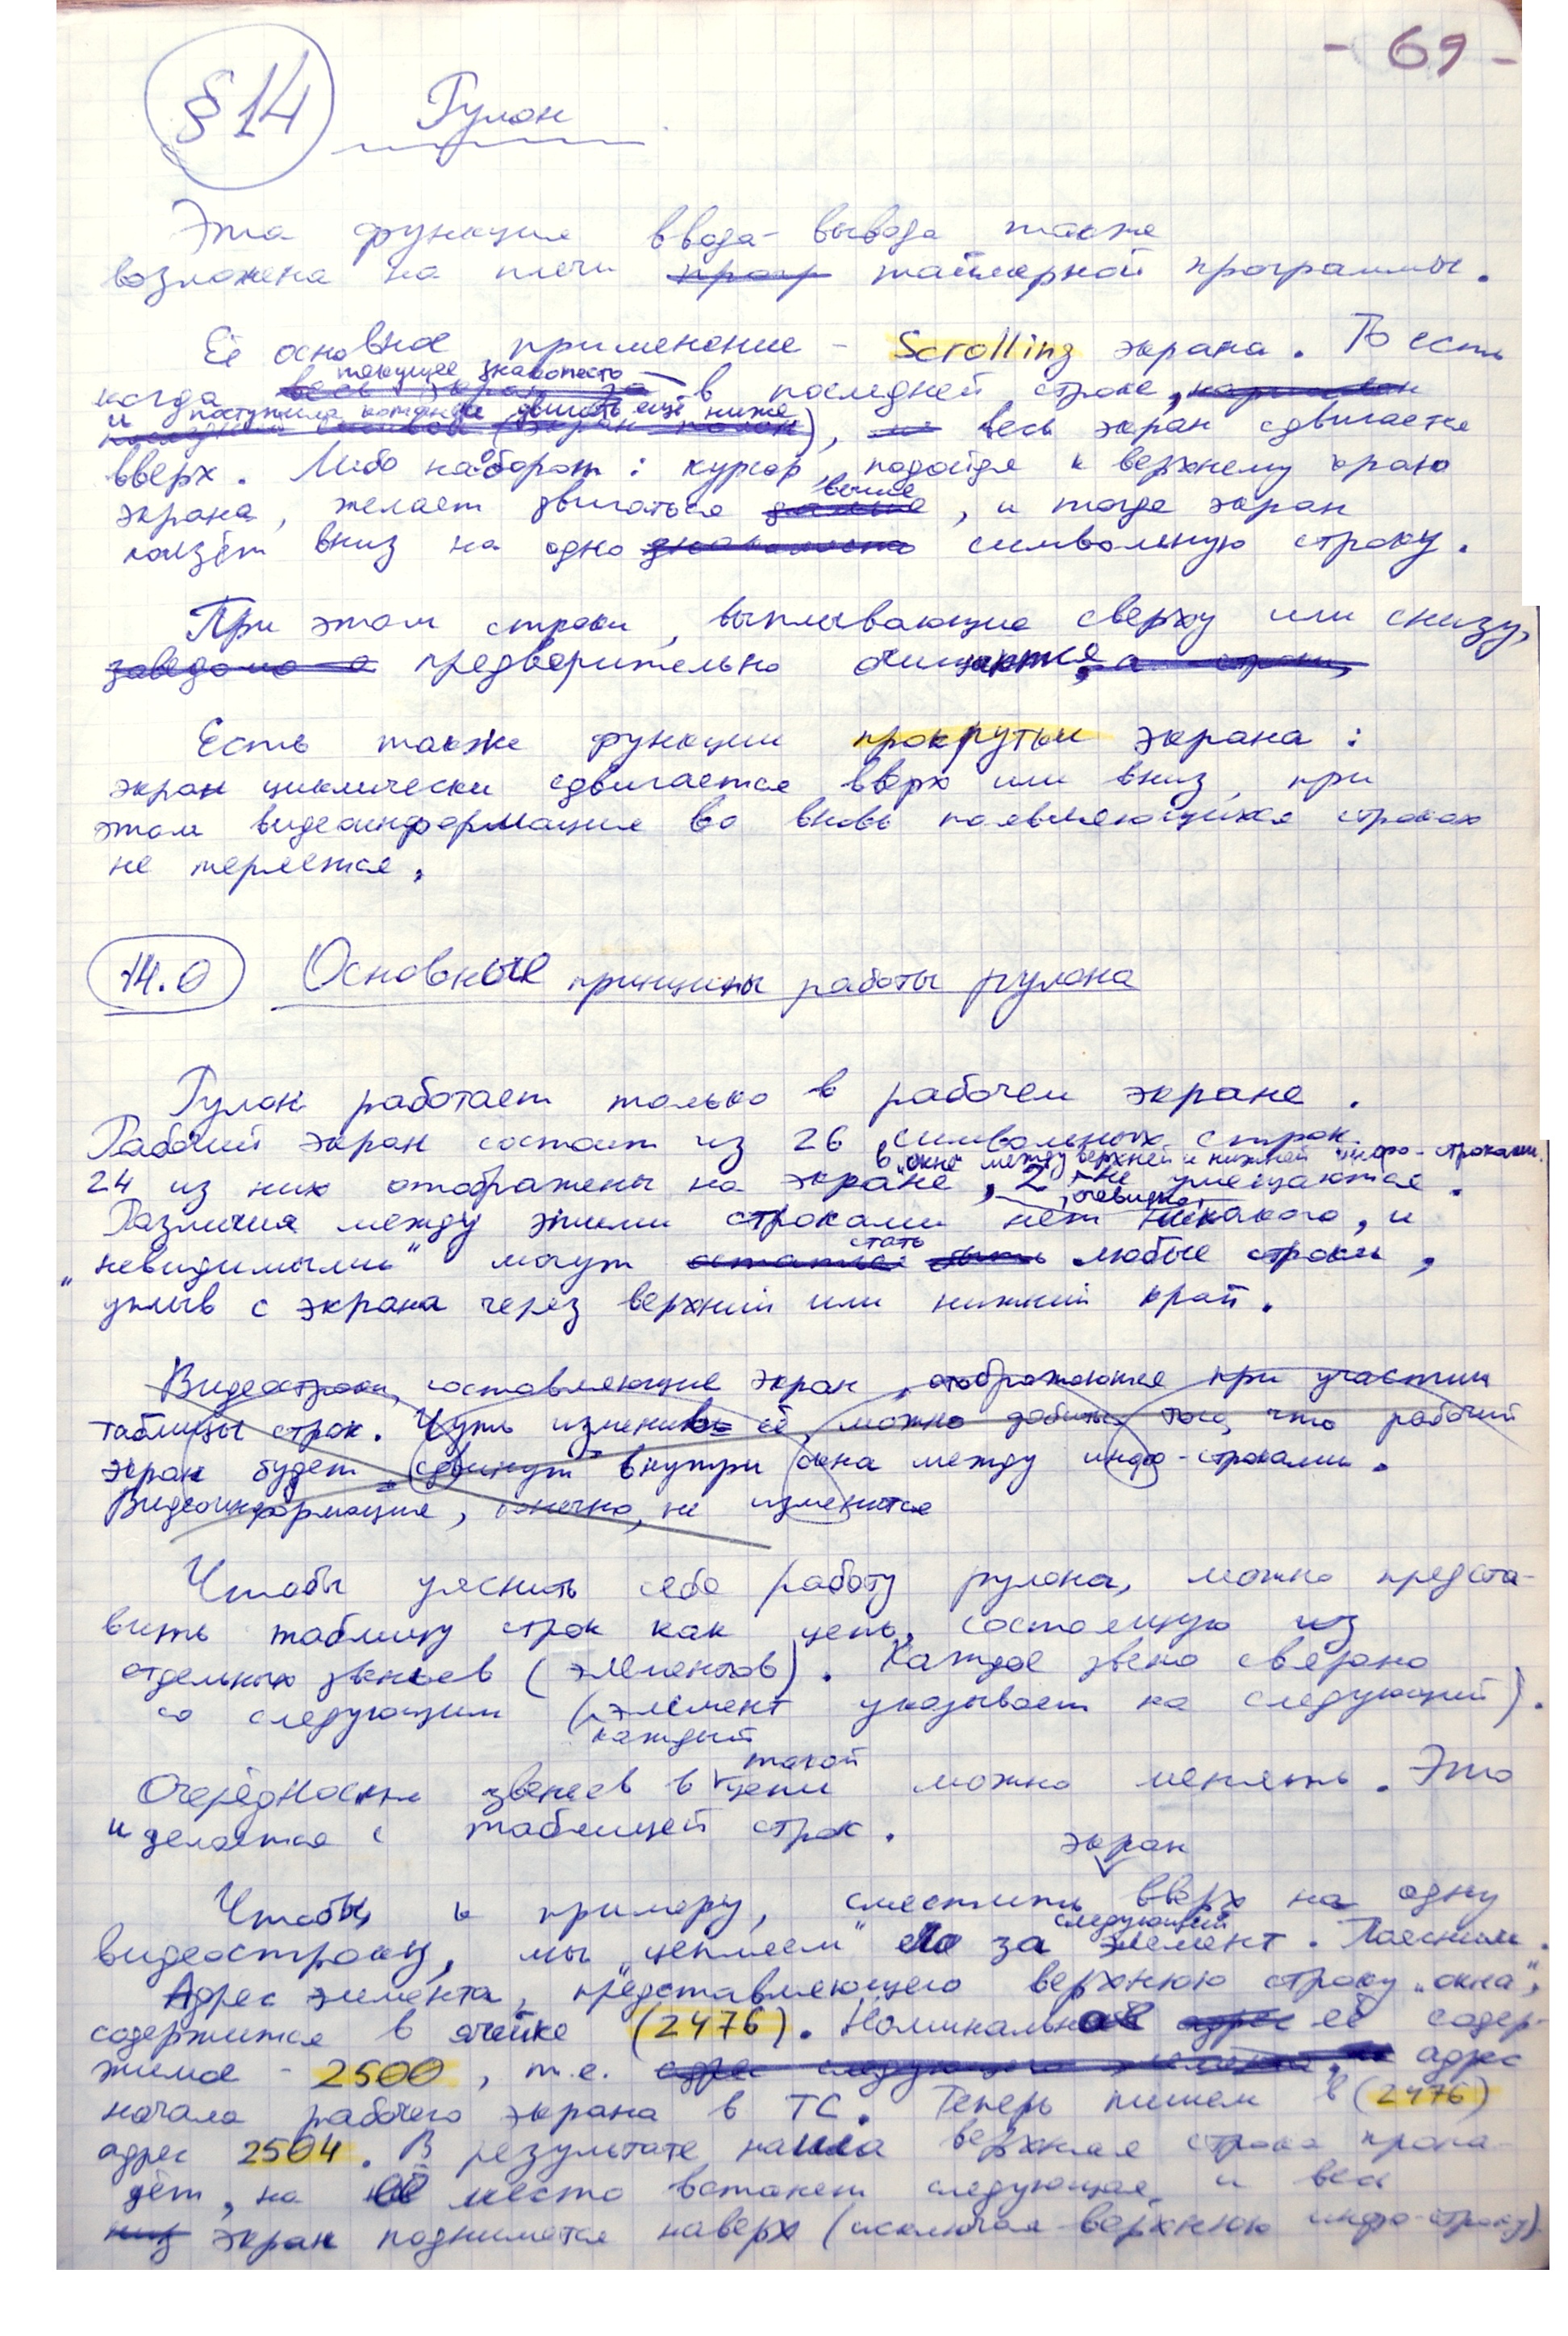 - 69 -
§14 Рулон
Эта функция ввода-вывода также
возложена на плечи прогр таймерной программы.
Её основное применение - Scrolling экрана. То есть
текущее знакоместо
когда весь экран за в последней строке,
и поступила команда двигать ещё ниже
(экран полон), весь экран сдвигается
вверх. Либо наоборот: курсор, подойдя к верхнему краю
выше
экрана, желает двигаться дальше, и тогда экран
ползёт вниз на одно знакоместо символьную строку.
При этом строки, выплывающие сверху или снизу,
заведомо о предварительно очищаются, а строки,
Есть также функции прокрутки экрана:
экран циклически сдвигается вверх или вниз, при
этом видеоинформация во вновь появляющихся строках
не теряется.
14.0 Основные принципы работы рулона
Рулон работает только в рабочем экране.
Рабочий экран состоит из 26 символьных строк.
в „окне" между верхней и нижней инфо-строками.
24 из них отображены на экране, 2 - не умещаются.
, очевидно,
Различия между этими строками нет никакого, и
стать
„невидимыми" могут остаться быть любые строки,
уплыв с экрана через верхний или нижний край.
Видеостроки, составляющие экран, отображаются при участии
таблицы строк. Чуть изменив её, можно добиться того, что рабочий
экран будет сдвинут внутри окна между инфо-строками.
Видеоинформация, конечно, не изменится
Чтобы уяснить себе работу рулона, можно предста-
вить таблицу строк как цепь, состоящую из
отдельных звеньев (элементов). Каждое звено связано
со следующим (элемент указывает на следующий).
каждый
такой
Очерёдность звеньев в цепи можно менять. Это
и делается с таблицей строк.
экран
Чтобы, к примеру, сместить вверх на одну
следующий
видеостроку, мы „цепляем" его за элемент. Поясним.
Адрес элемента, представляющего верхнюю строку „окна",
содержится в ячейке (2476). Номинальное адрес её содер-
жимое - 2500, т.е. адрес следующего элемента, адрес
начала рабочего экрана в ТС. Теперь пишем в (2476)
адрес 2504. В результате наша верхняя строка пропа-
дёт, на её место встанет следующая, и весь
низ экран поднимется наверх (исключая верхнюю инфо-строку).